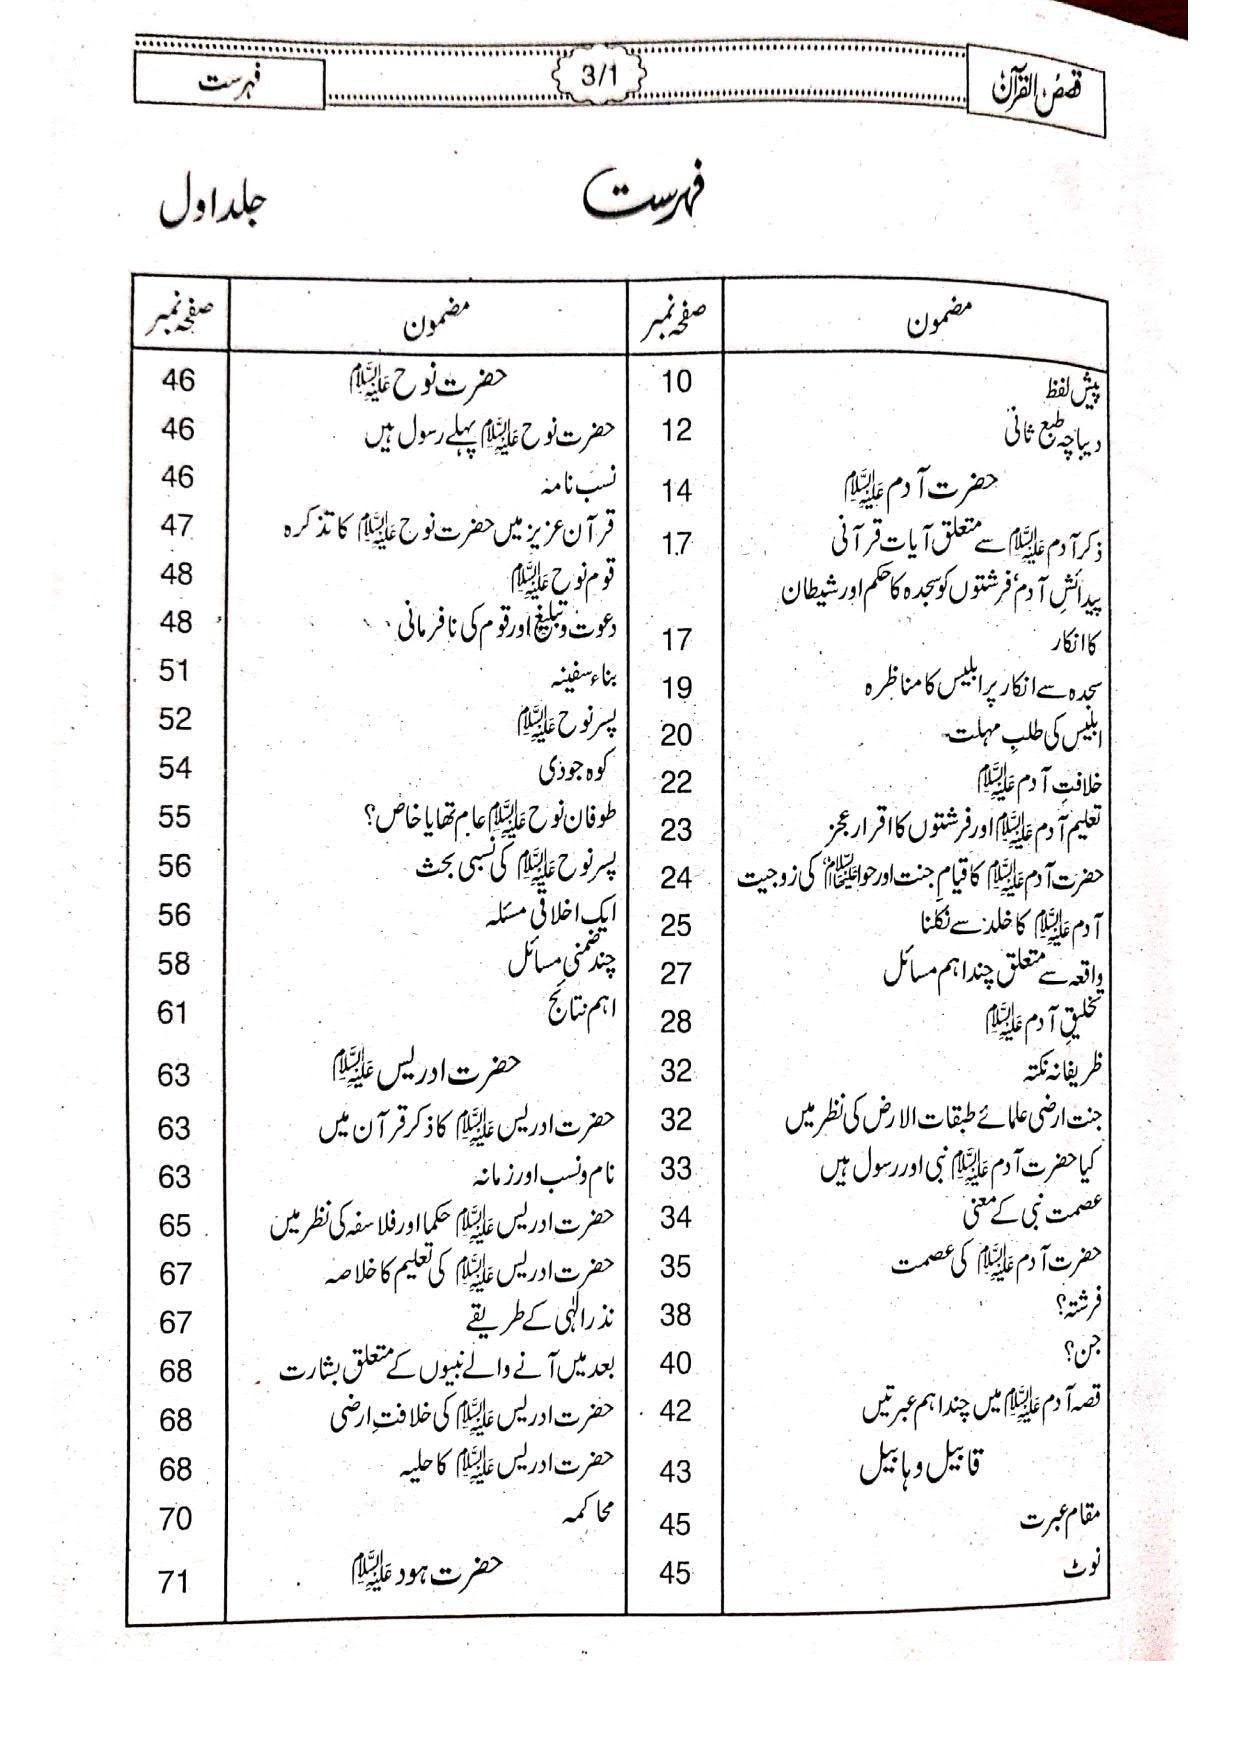 قصص القرآن
3/1
فہرست
فہرست
جلد اول
مضمون صفحہ نمبر
پیش لفظ 10
دیباچہ طبع ثانی 12
حضرت آدم علیہ السلام 14
ذکر آدم علیہ السلام سے متعلق آیات قرآنی 17
پیدائشِ آدم، فرشتوں کو سجدہ کا حکم اور شیطان
کا انکار 17
سجدہ سے انکار پر ابلیس کا مناظرہ 19
ابلیس کی طلبِ مہلت 20
خلافتِ آدم علیہ السلام 22
تعلیم آدم علیہ السلام اور فرشتوں کا اقرار عجز 23
حضرت آدم علیہ السلام کا قیامِ جنت اور حوا علیہا السلام کی زوجیت 24
آدم علیہ السلام کا خلد سے نکلنا 25
واقعہ سے متعلق چند اہم مسائل 27
تخلیقِ آدم علیہ السلام 28
ظریفانہ نکتہ 32
جنت ارضی علمائے طبقات الارض کی نظر میں 32
کیا حضرت آدم علیہ السلام نبی اور رسول ہیں 33
عصمت نبی کے معنی 34
حضرت آدم علیہ السلام کی عصمت 35
فرشتہ؟ 38
جن؟ 40
قصہ آدم علیہ السلام میں چند اہم عبرتیں 42
قابیل و ہابیل 43
مقام عبرت 45
نوٹ 45
مضمون صفحہ نمبر
حضرت نوح علیہ السلام 46
حضرت نوح علیہ السلام پہلے رسول ہیں 46
نسب نامہ 46
قرآن عزیز میں حضرت نوح علیہ السلام کا تذکرہ 47
قوم نوح علیہ السلام 48
دعوت و تبلیغ اور قوم کی نافرمانی 48
بناء سفینہ 51
پسر نوح علیہ السلام 52
کوہ جودی 54
طوفان نوح علیہ السلام عام تھا یا خاص؟ 55
پسر نوح علیہ السلام کی نسبی بحث 56
ایک اخلاقی مسئلہ 56
چند ضمنی مسائل 58
اہم نتائج 61
حضرت ادریس علیہ السلام 63
حضرت ادریس علیہ السلام کا ذکر قرآن میں 63
نام و نسب اور زمانہ 63
حضرت ادریس علیہ السلام حکما اور فلاسفہ کی نظر میں 65
حضرت ادریس علیہ السلام کی تعلیم کا خلاصہ 67
نذر الٰہی کے طریقے 67
بعد میں آنے والے نبیوں کے متعلق بشارت 68
حضرت ادریس علیہ السلام کی خلافتِ ارضی 68
حضرت ادریس علیہ السلام کا حلیہ 68
محاکمہ 70
حضرت ہود علیہ السلام 71